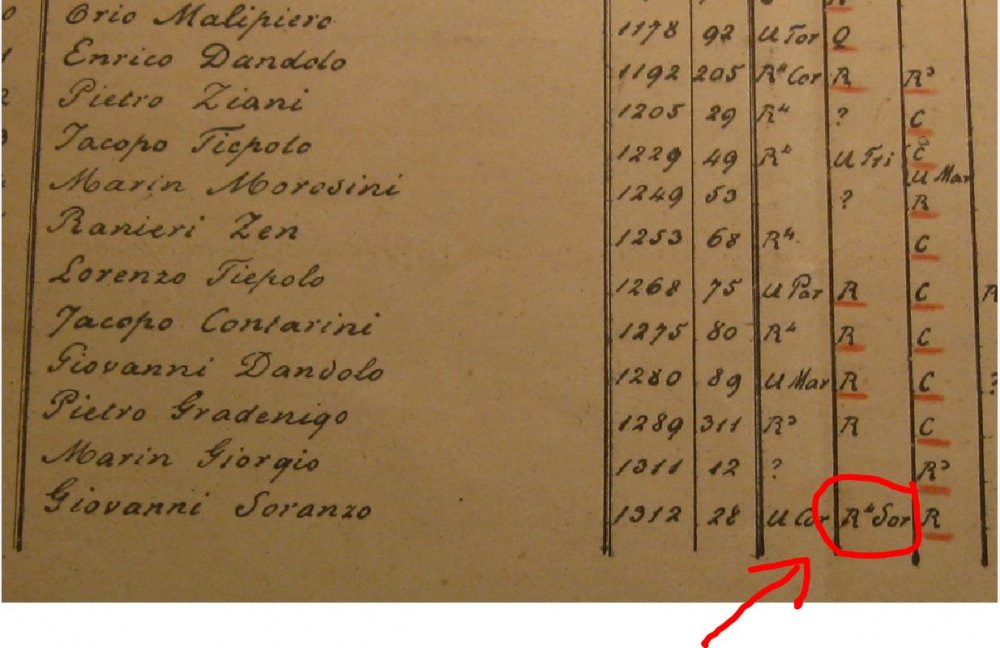 Orio Malipiero 1178 92 U Tor Q
Enrico Dandolo 1192 205 R⁴ Cor R R³
Pietro Ziani 1205 29 R⁴ ? C
Jacopo Tiepolo 1229 49 R⁴ U Tri C
U Mar
Marin Morosini 1249 53 ? R
Ranieri Zen 1253 68 R⁴ C
Lorenzo Tiepolo 1268 75 U Par R C
Jacopo Contarini 1275 80 R⁴ R C
Giovanni Dandolo 1280 89 U Mar R C ?
Pietro Gradenigo 1289 311 R³ R C
Marin Giorgio 1311 12 ? R³
Giovanni Soranzo 1312 28 U Cor R⁴ Sor R